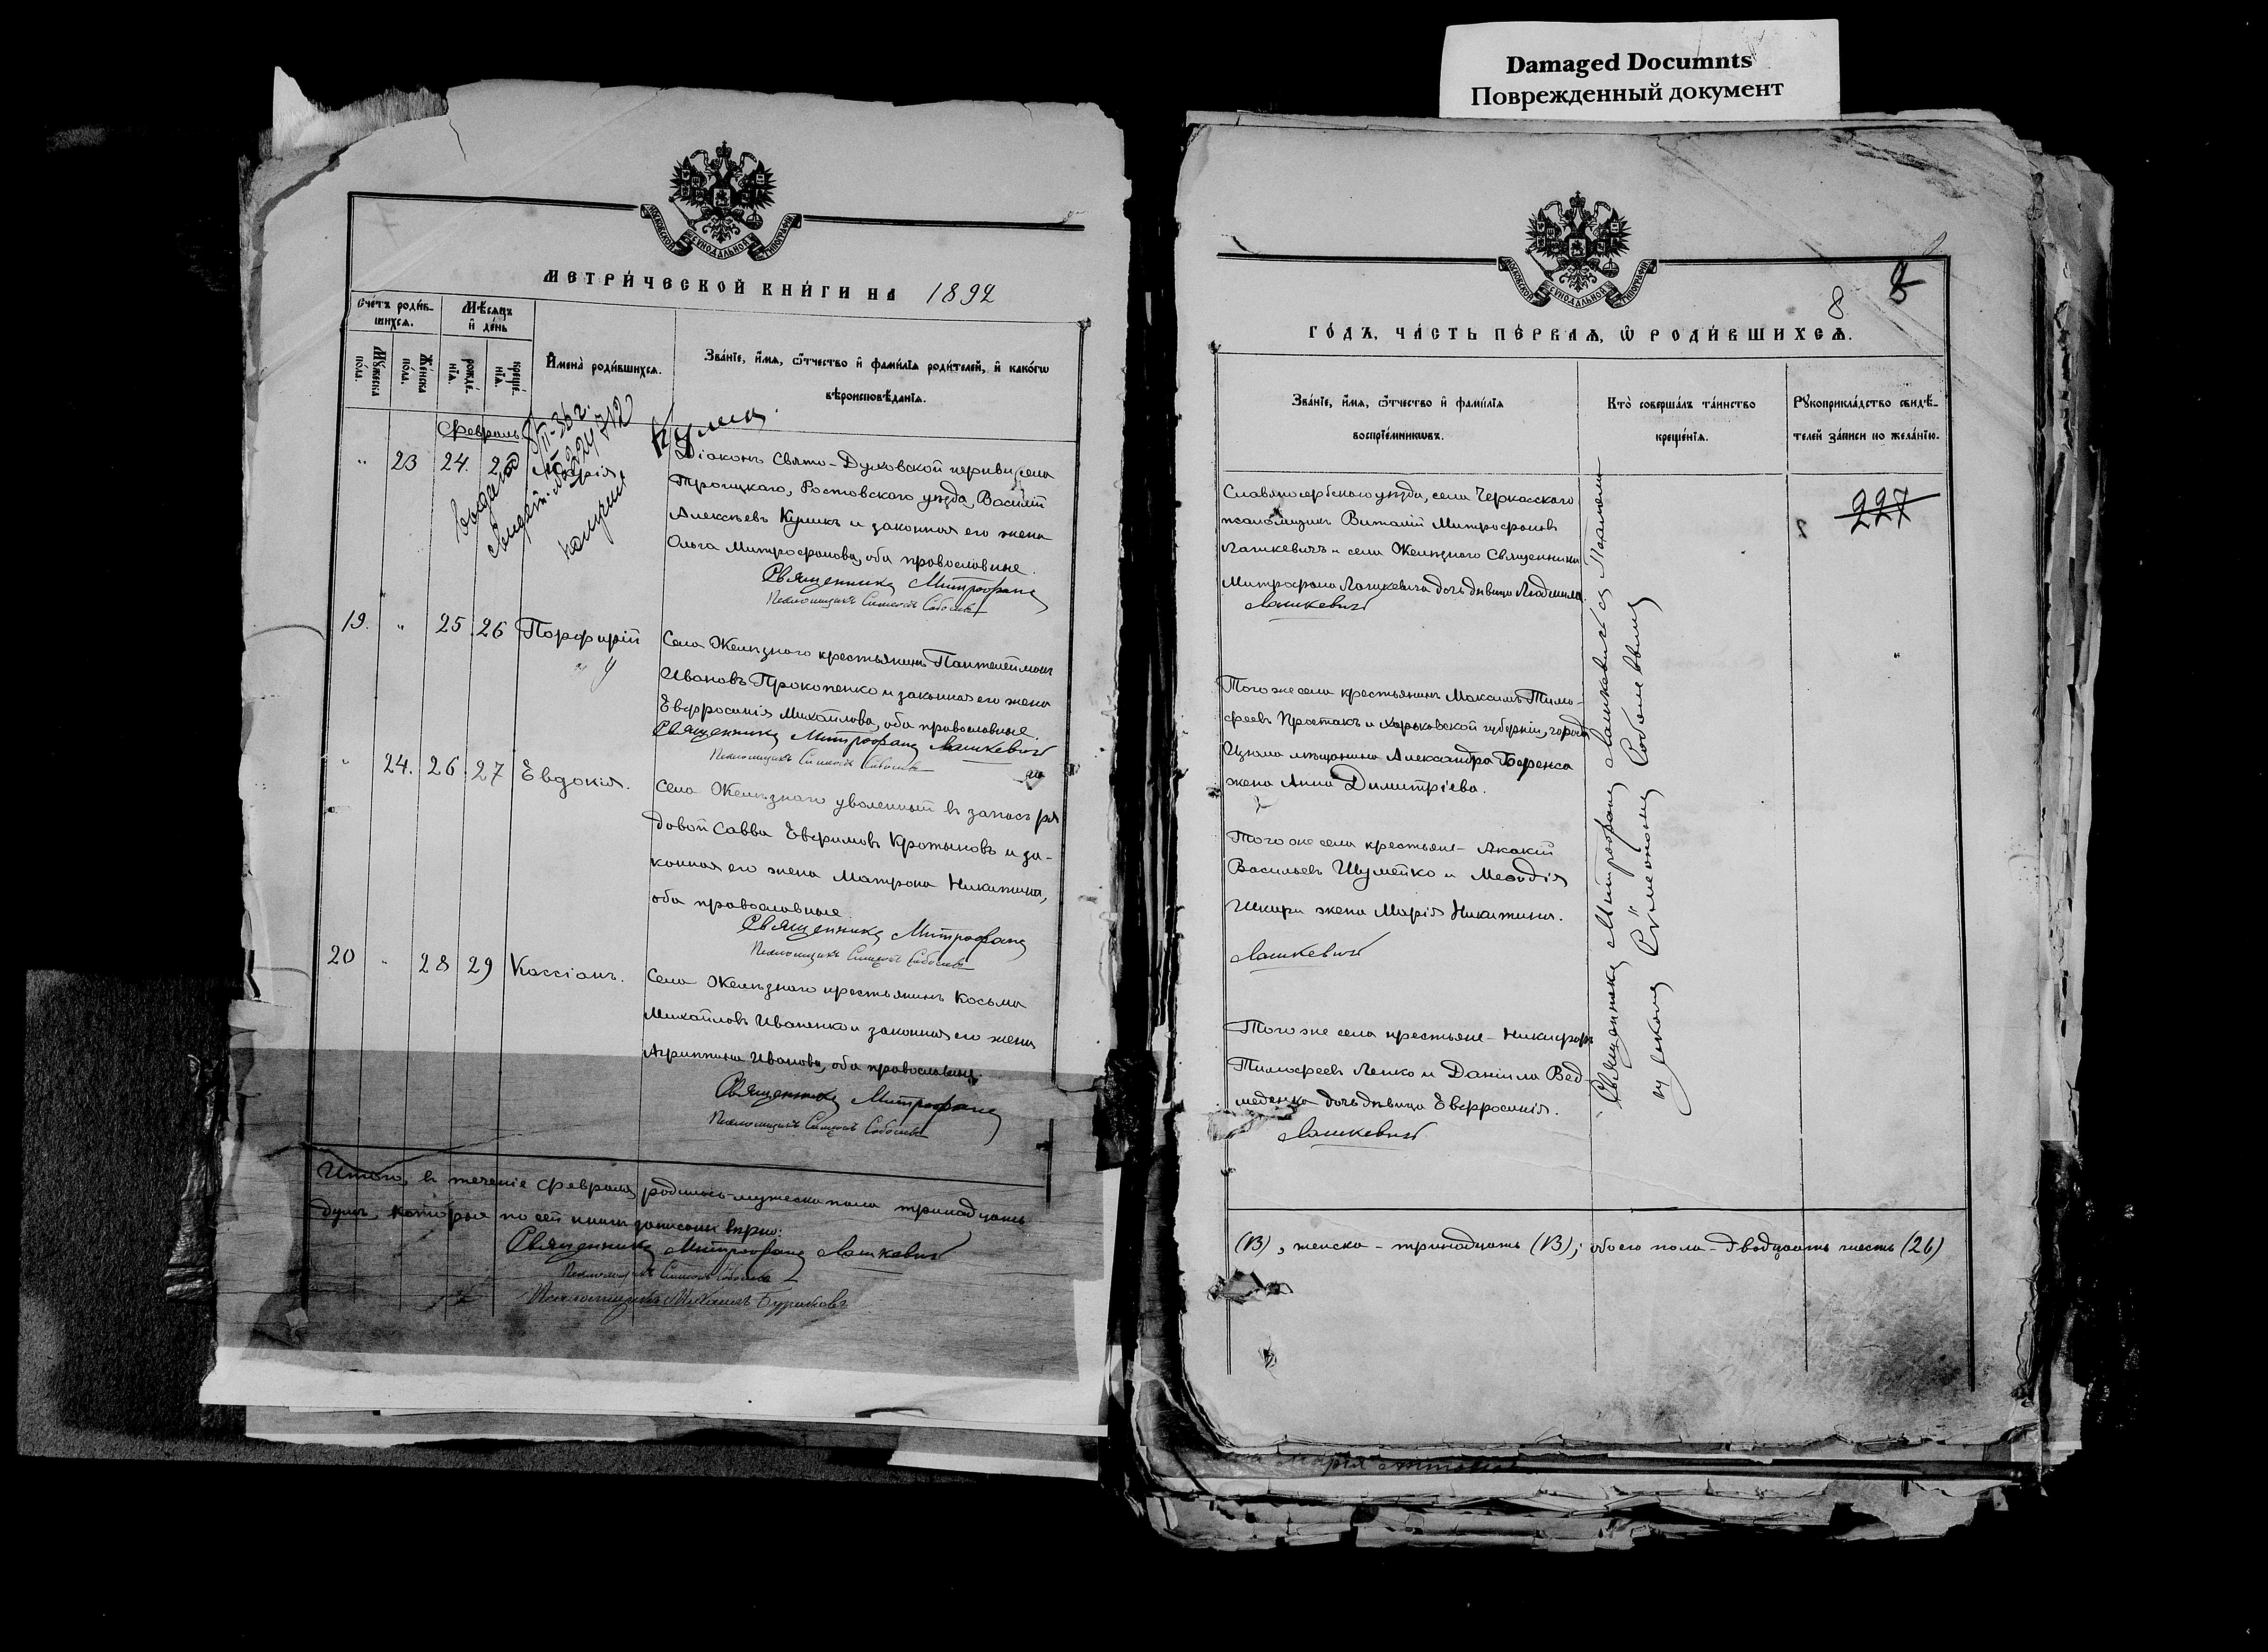 Damaged Documnts
Поврежденный документ
МОСКОВСКОЙ СУНОДАЛЬНОЙ ТИПОГРАФІИ
МЕТРИ́ЧЕСКОЙ КНИ́ГИ НА 1892
Сче́тъ роди́в-
шихсѧ.
Мꙋ́жеска
по́ла.
Же́нска
по́ла.
Мѣ́сѧцъ
и҆ де́нь
рожде́-
нїѧ.
креще́-
нїѧ.
И҆мена̀ роди́вшихсѧ.
Зва́нїе, и҆́мѧ, ѻ҆́тчество и҆ фамѝлїѧ роди́телей, и҆ како́гѡ
вѣроисповѣ́данїѧ.
Февраль
" 23 24. Марія
Діаконъ Свято-Духовской церкви села
Троицкаго, Ростовскаго уѣзда, Василій
Алексѣевъ Куликъ и законная его жена
Ольга Митрофанова, оба православные.
Священникъ Митрофанъ
Псаломщикъ Симеонъ Соболевъ
19. " 25. 26 Порфирій
Села Желѣзнаго крестьянинъ Пантелеймонъ
Ивановъ Прокопенко и законная его жена
Евфросинія Михайлова, оба православные.
Священникъ Митрофанъ Лашкевичъ
Псаломщикъ Симеонъ Соболевъ
" 24. 26. 27 Евдокія.
Села Желѣзнаго уволенный въ запасъ ря
довой Савва Евфимовъ Кротыновъ и за-
конная его жена Матрона Никитина,
оба православные.
Священникъ Митрофанъ
Псаломщикъ Симеонъ Соболевъ
20 " 28 29 Кассіанъ.
Села Желѣзнаго крестьянинъ Косьма
Михайловъ Иваненко и законная его жена
Агриппина Иванова, оба православные.
Священникъ Митрофанъ
Псаломщикъ Симеонъ Соболевъ
Итого, въ теченіе февраля родилось мужеска пола тринадцать
душъ, которыя по сей книгѣ записаны вѣрно:
Священникъ Митрофанъ Лашкевичъ
Псаломщикъ Симеонъ Соболевъ
Псаломщикъ
МОСКОВСКОЙ СУНОДАЛЬНОЙ ТИПОГРАФІИ
8
ГО́ДЪ, ЧА́СТЬ ПЕ́РВАѦ, Ѡ҆ РОДИ́ВШИХСѦ.
Зва́нїе, и҆́мѧ, ѻ҆́тчество и҆ фамѝлїѧ
воспрїе́мникѡвъ.
Кто̀ соверша́лъ та́инство
креще́нїѧ.
Рꙋкоприкла́дство свидѣ́-
телей за́писи по жела́нїю.
227
Славяносербскаго уѣзда, села Черкасскаго
псаломщикъ Виталій Митрофановъ
Лашкевичъ и села Желѣзнаго Священника
Митрофана Лашкевича дочь дѣвица Людмила.
Лашкевичъ
Того же села крестьянинъ Максимъ Тимо-
феевъ Простакъ и Харьковской губерніи, города
Изюма мѣщанина Александра Беренса
жена Анна Димитріева.
Того же села крестьяне - Акакій
Васильевъ Шумейко и Меѳодія
Шкири жена Марія Никитина.
Лашкевичъ
Того же села крестьяне - Никифоръ
Тимофеевъ Лепко и Даніила Вед-
меденка дочь дѣвица Евфросинія.
Лашкевичъ
Священникъ Митрофанъ Лашкевичъ съ Псаломщ
икомъ Симеономъ Соболевымъ
(13), женска - тринадцать (13); обоего пола - двадцать шесть (26)